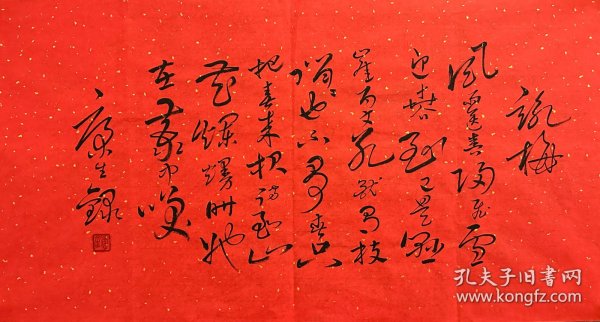 詠梅
風雨送春歸飛雪
迎春到已是懸
崖百丈冰猶有花枝
俏俏也不爭春只
把春來報待到山
花爛熳時她
在叢中笑
康生錄
孔夫子旧书网
www.kongfz.com